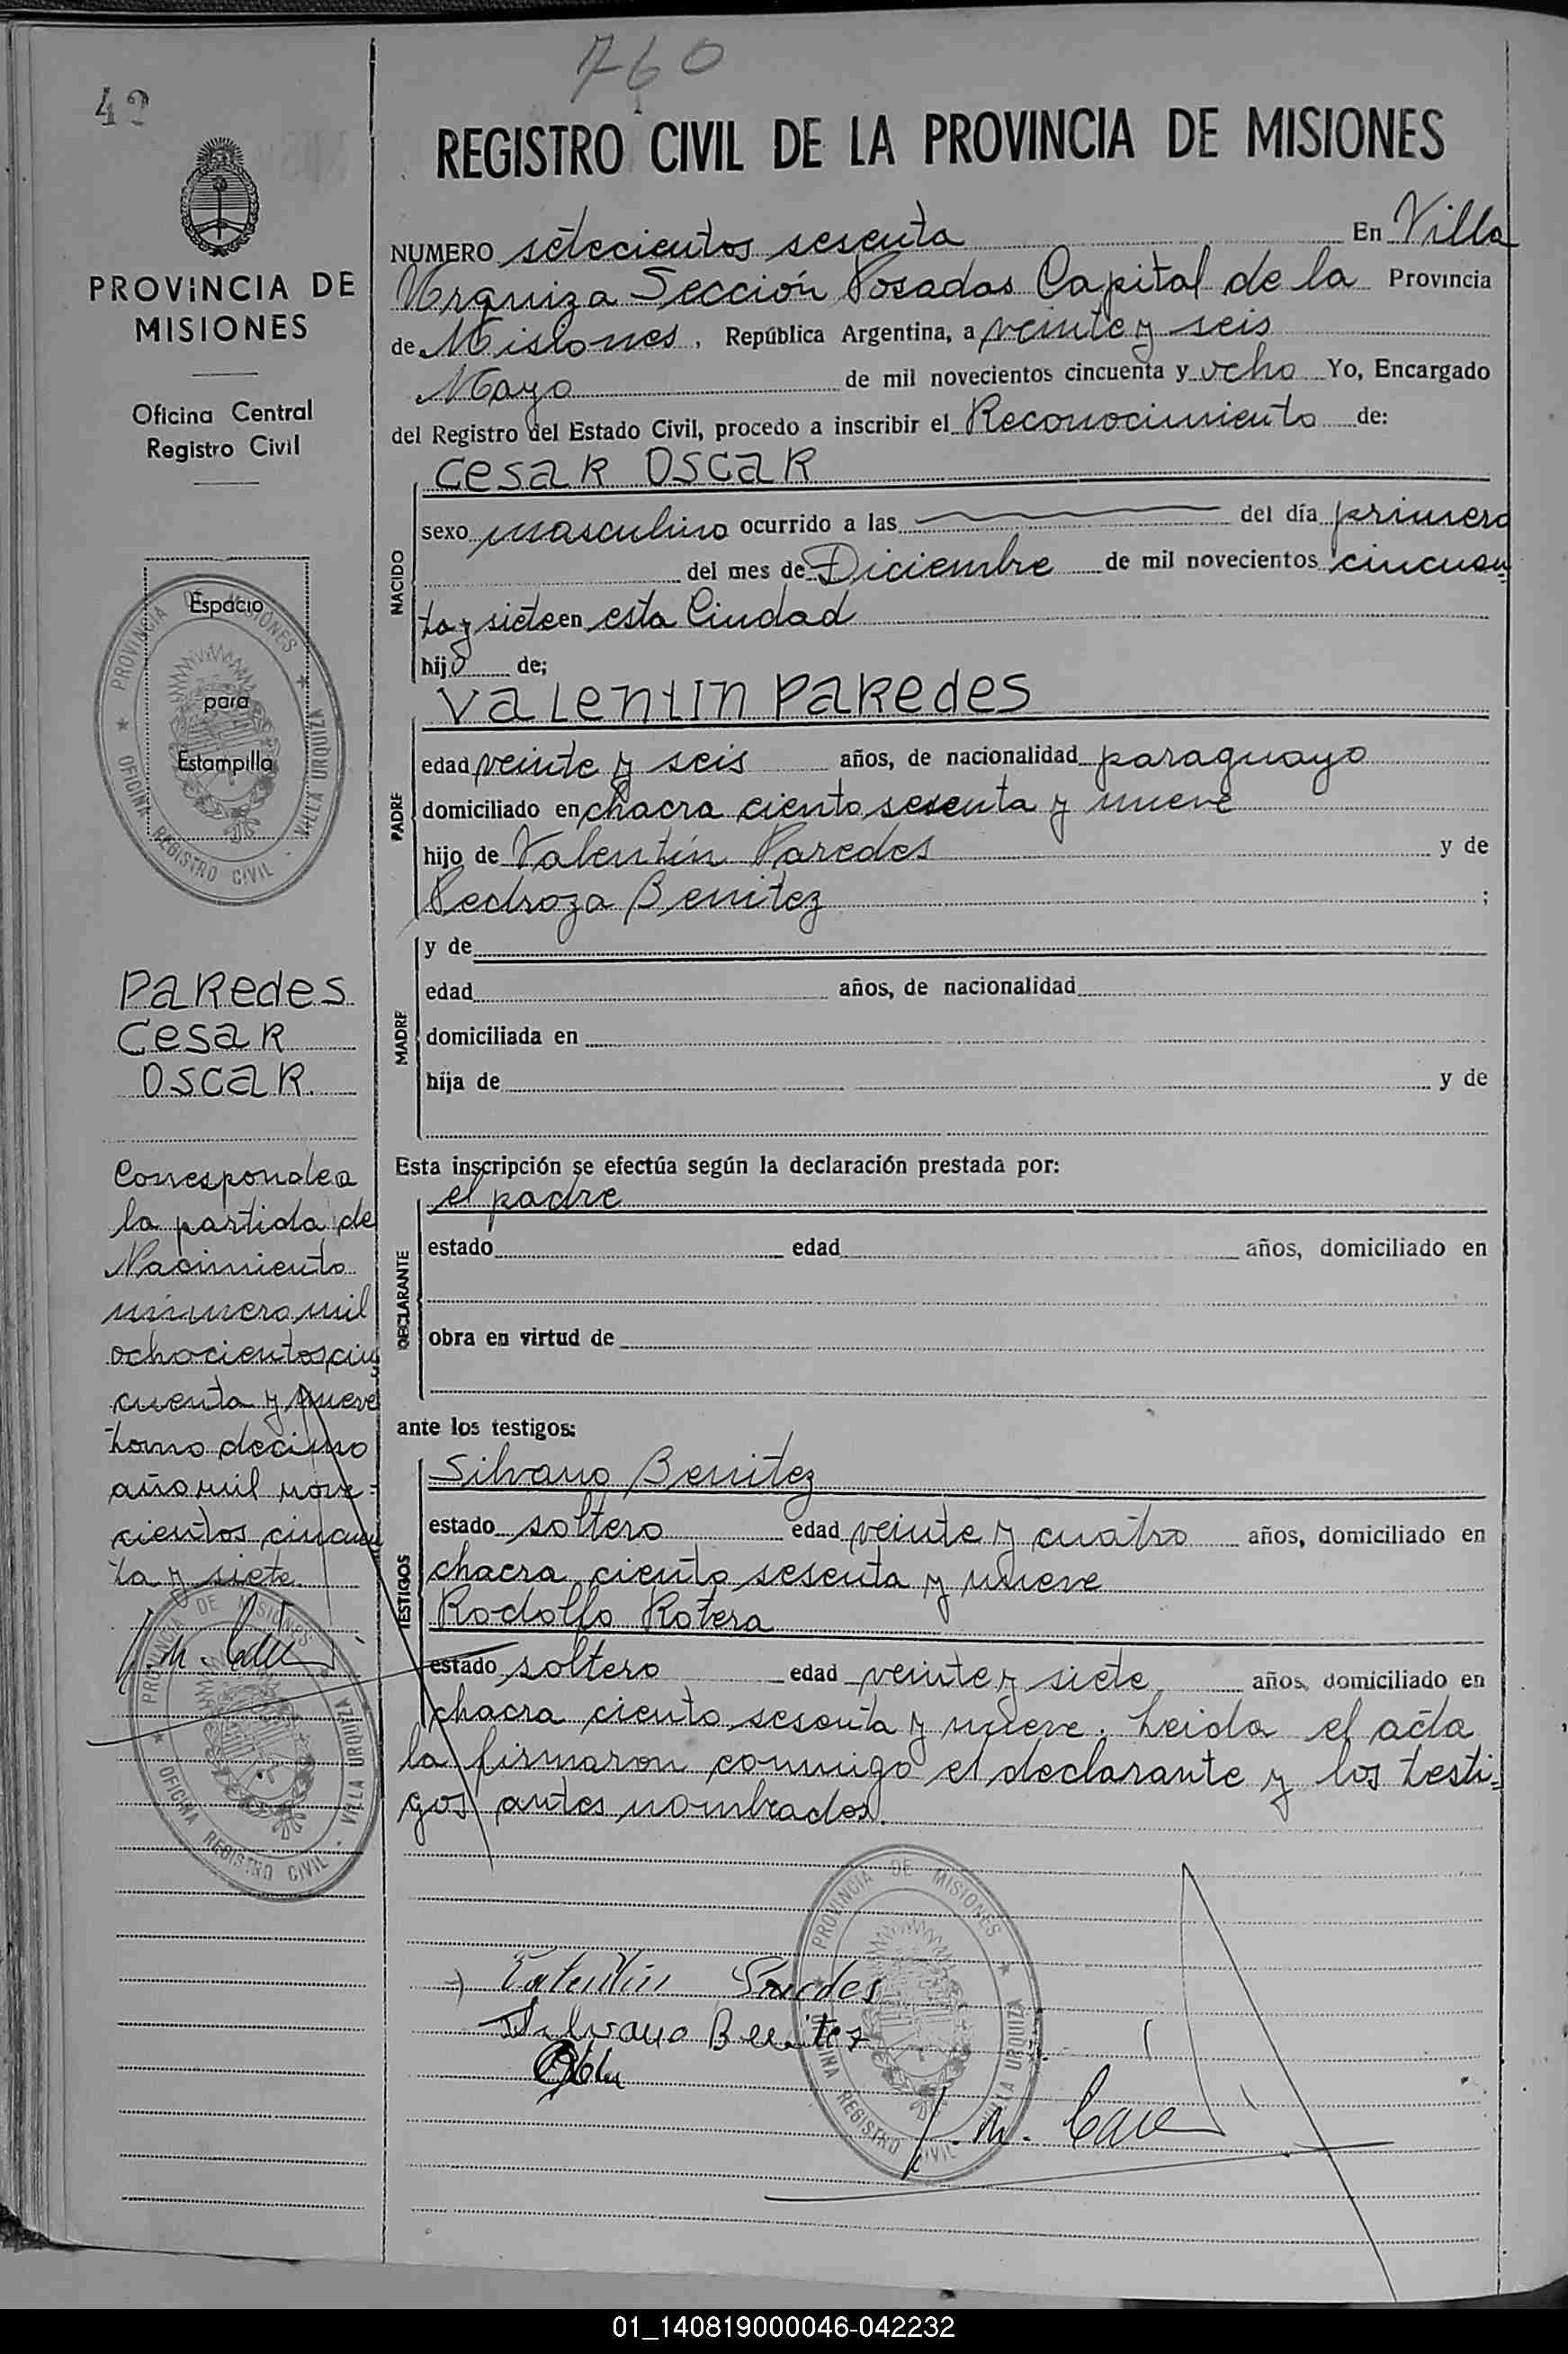 760
42
REGISTRO CIVIL DE LA PROVINCIA DE MISIONES
PROVINCIA DE
MISIONES
Oficina Central
Registro Civil
NUMERO setecientos sesenta En Villa
Urquiza Sección Posadas Capital de la Provincia
de Misiones, República Argentina, a veinte y seis
Mayo de mil novecientos cincuenta y ocho Yo, Encargado
del Registro del Estado Civil, procedo a inscribir el Reconocimiento de:
Cesar Oscar
NACIDO
sexo masculino ocurrido a las del día primero
del mes de Diciembre de mil novecientos cincuen
ta y siete en esta Ciudad
hijo de;
Espacio
para
Estampilla
PROVINCIA DE MISIONES
OFICINA REGISTRO CIVIL - VILLA URQUIZA
Valentin Paredes
PADRE
edad veinte y seis años, de nacionalidad paraguayo
domiciliado en chacra ciento sesenta y nueve
hijo de Valentín Paredes y de
Pedroza Benitez ;
MADRE
y de
edad años, de nacionalidad
domiciliada en
hija de y de
Paredes
Cesar
Oscar
Corresponde a
la partida de
Nacimiento
número mil
ochocientos cin
cuenta y nueve
tomo decimo
año mil nove=
cientos cincuen
ta y siete.
PROVINCIA DE MISIONES
OFICINA REGISTRO CIVIL - VILLA URQUIZA
Esta inscripción se efectúa según la declaración prestada por:
el padre
DECLARANTE
estado edad años, domiciliado en
obra en virtud de
ante los testigos:
TESTIGOS
Silvano Benitez
estado soltero edad veinte y cuatro años, domiciliado en
chacra ciento sesenta y nueve
Rodolfo Rotera
estado soltero edad veinte y siete años, domiciliado en
chacra ciento sesenta y nueve. Leida el acta
la firmaron conmigo el declarante y los testi=
gos antes nombrados.
Valentin Paredes
Silvano Benitez
PROVINCIA DE MISIONES
OFICINA REGISTRO CIVIL VILLA URQUIZA
01_140819000046-042232